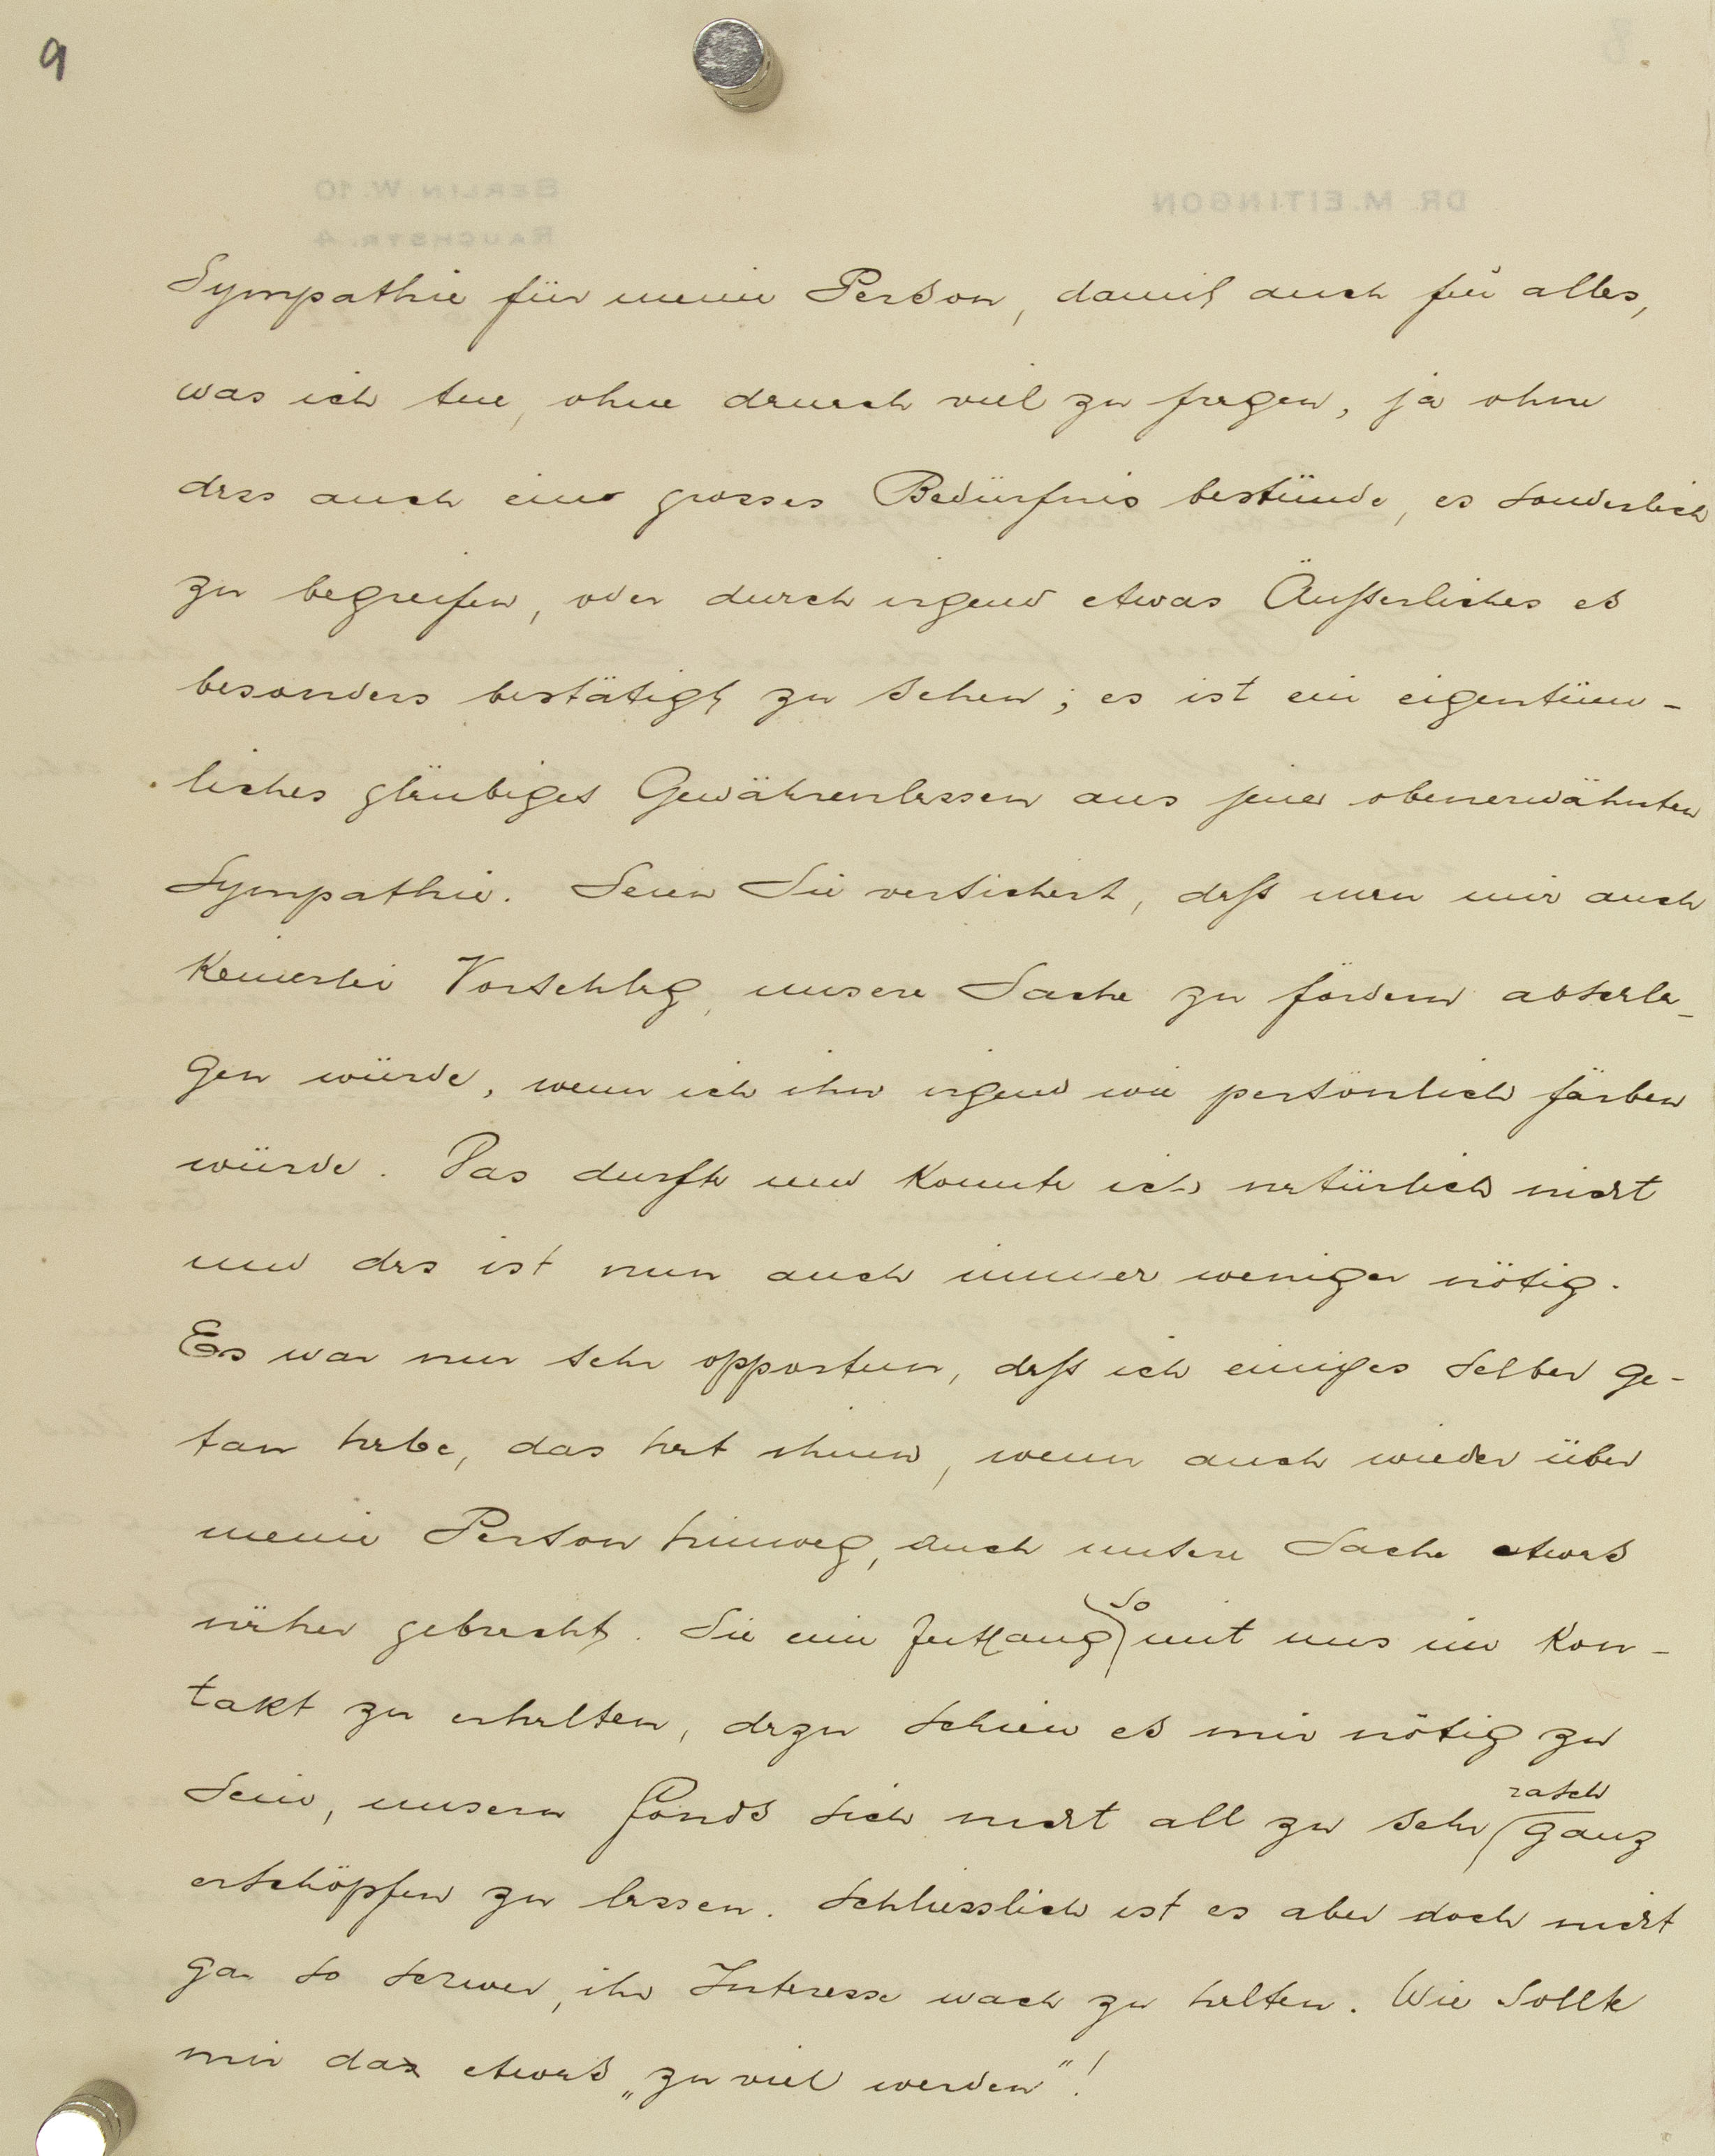 9
DR. M. EITINGON
BERLIN W. 10
RAUCHSTR. 4
Sympathie für meine Person, damit auch für alles,
was ich tue, ohne danach viel zu fragen, ja ohne
dass auch ein grosses Bedürfnis bestünde, es sonderlich
zu begreifen, oder durch irgend etwas Äußerliches es
besonders bestätigt zu sehen; es ist ein eigentüm-
liches gläubiges Gewährenlassen aus jener obenerwähnten
Sympathie. Seien Sie versichert, daß man mir auch
keinerlei Vorschlag, unsere Sache zu fördern abschla-
gen würde, wenn ich ihn irgend wie persönlich färben
würde. Das durfte und konnte ich natürlich nicht
und das ist nun auch immer weniger nötig.
Es war nur sehr opportun, daß ich einiges selber ge-
tan habe, das hat ihnen, wenn auch wieder über
meine Person hinweg, auch unsere Sache etwas
näher gebracht. Sie eine Zeitlang so mit uns in Kon-
takt zu erhalten, dazu schien es mir nötig zu
sein, unsern Fonds sich nicht all zu sehr rasch ganz
erschöpfen zu lassen. Schliesslich ist es aber doch nicht
gar so schwer, ihr Interesse wach zu halten. Wie sollte
mir da etwas „zu viel werden"!